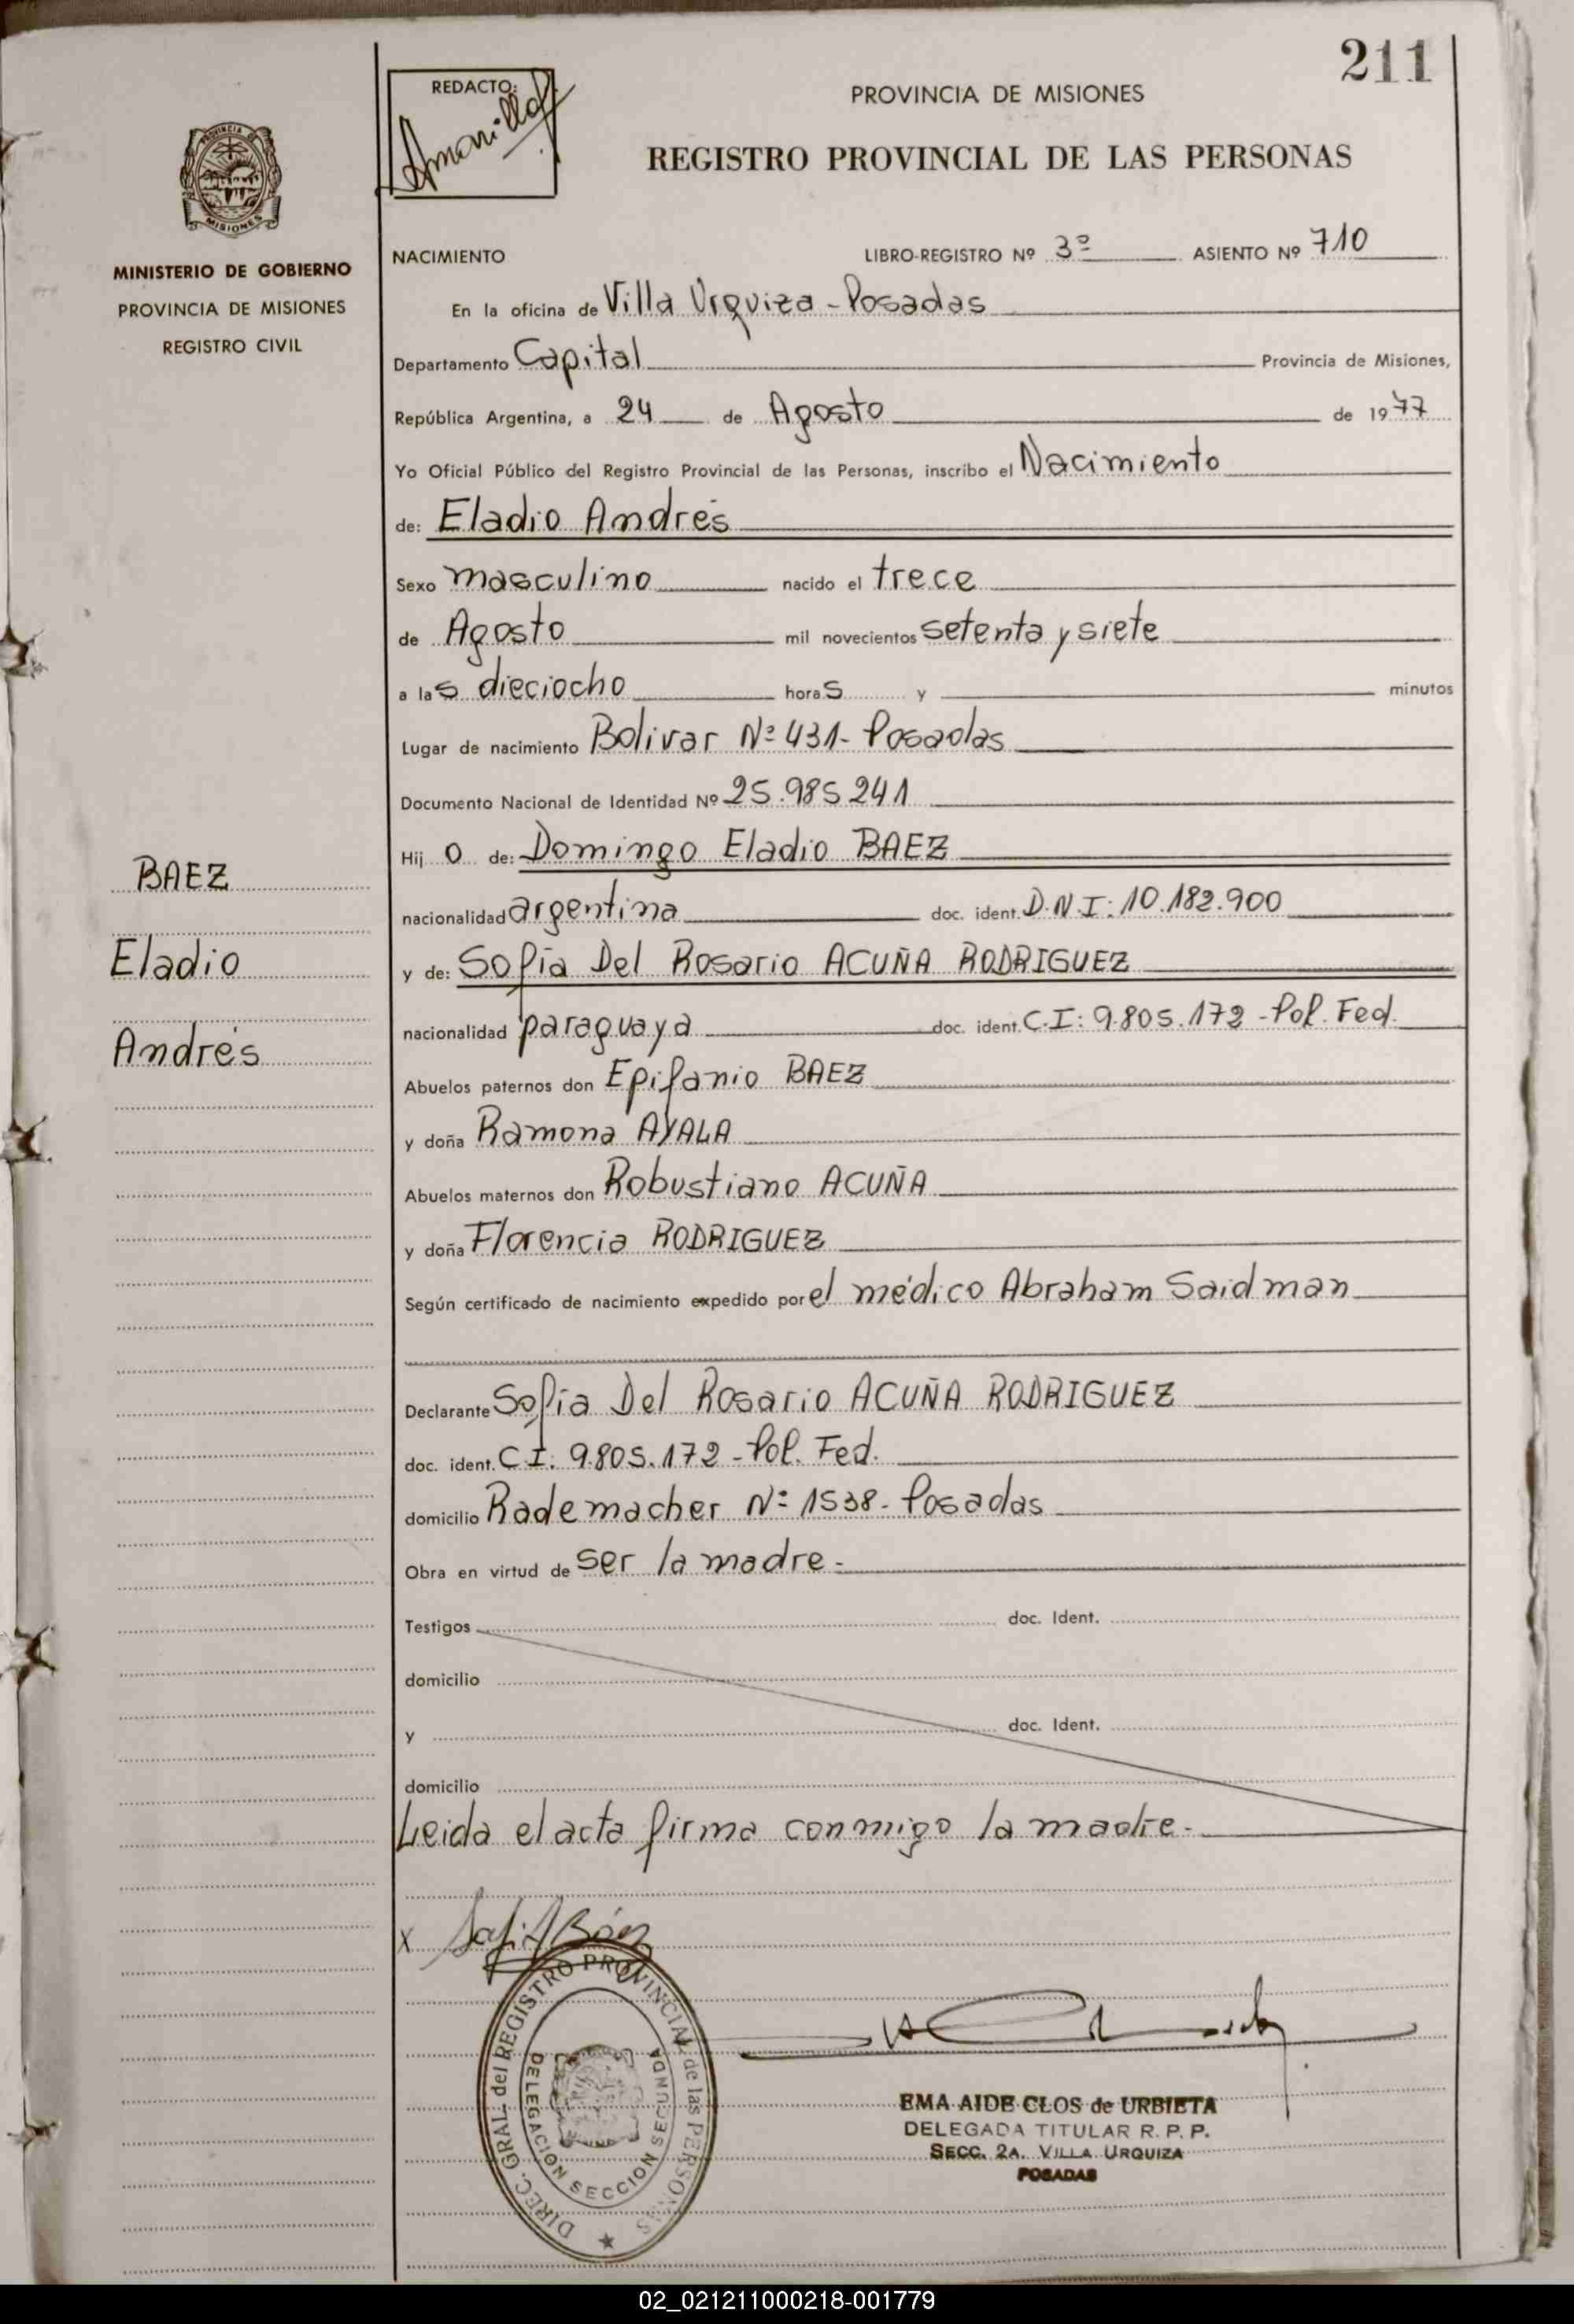 211
REDACTO:
Amarilla
PROVINCIA DE MISIONES
REGISTRO PROVINCIAL DE LAS PERSONAS
PROVINCIA DE
MISIONES
MINISTERIO DE GOBIERNO
PROVINCIA DE MISIONES
REGISTRO CIVIL
NACIMIENTO LIBRO-REGISTRO Nº 3º ASIENTO Nº 710
En la oficina de Villa Urquiza - Posadas
Departamento Capital Provincia de Misiones,
República Argentina, a 24 de Agosto de 1977
Yo Oficial Público del Registro Provincial de las Personas, inscribo el Nacimiento
de: Eladio Andrés
Sexo masculino nacido el trece
de Agosto mil novecientos setenta y siete
a las dieciocho horas y minutos
Lugar de nacimiento Bolivar Nº 431 - Posadas
Documento Nacional de Identidad Nº 25.985.241
Hijo de: Domingo Eladio BAEZ
nacionalidad argentina doc. ident. D.N.I: 10.182.900
y de: Sofía Del Rosario ACUÑA RODRIGUEZ
nacionalidad paraguaya doc. ident. C.I: 9.805.172 - Pol. Fed.
Abuelos paternos don Epifanio BAEZ
y doña Ramona AYALA
Abuelos maternos don Robustiano ACUÑA
y doña Florencia RODRIGUEZ
Según certificado de nacimiento expedido por el médico Abraham Saidman
Declarante Sofía Del Rosario ACUÑA RODRIGUEZ
doc. ident. C.I: 9.805.172 - Pol. Fed.
domicilio Rademacher Nº 1538 - Posadas
Obra en virtud de ser la madre.-
Testigos doc. Ident.
domicilio
y doc. Ident.
domicilio
Leida el acta firma conmigo la madre.-
BAEZ
Eladio
Andrés
X Sofia A Báez
DIREC. GRAL. del REGISTRO PROVINCIAL de las PERSONAS
DELEGACION SECCION SEGUNDA
EMA AIDE CLOS de URBIETA
DELEGADA TITULAR R. P. P.
SECC. 2A. VILLA URQUIZA
POSADAS
02_021211000218-001779